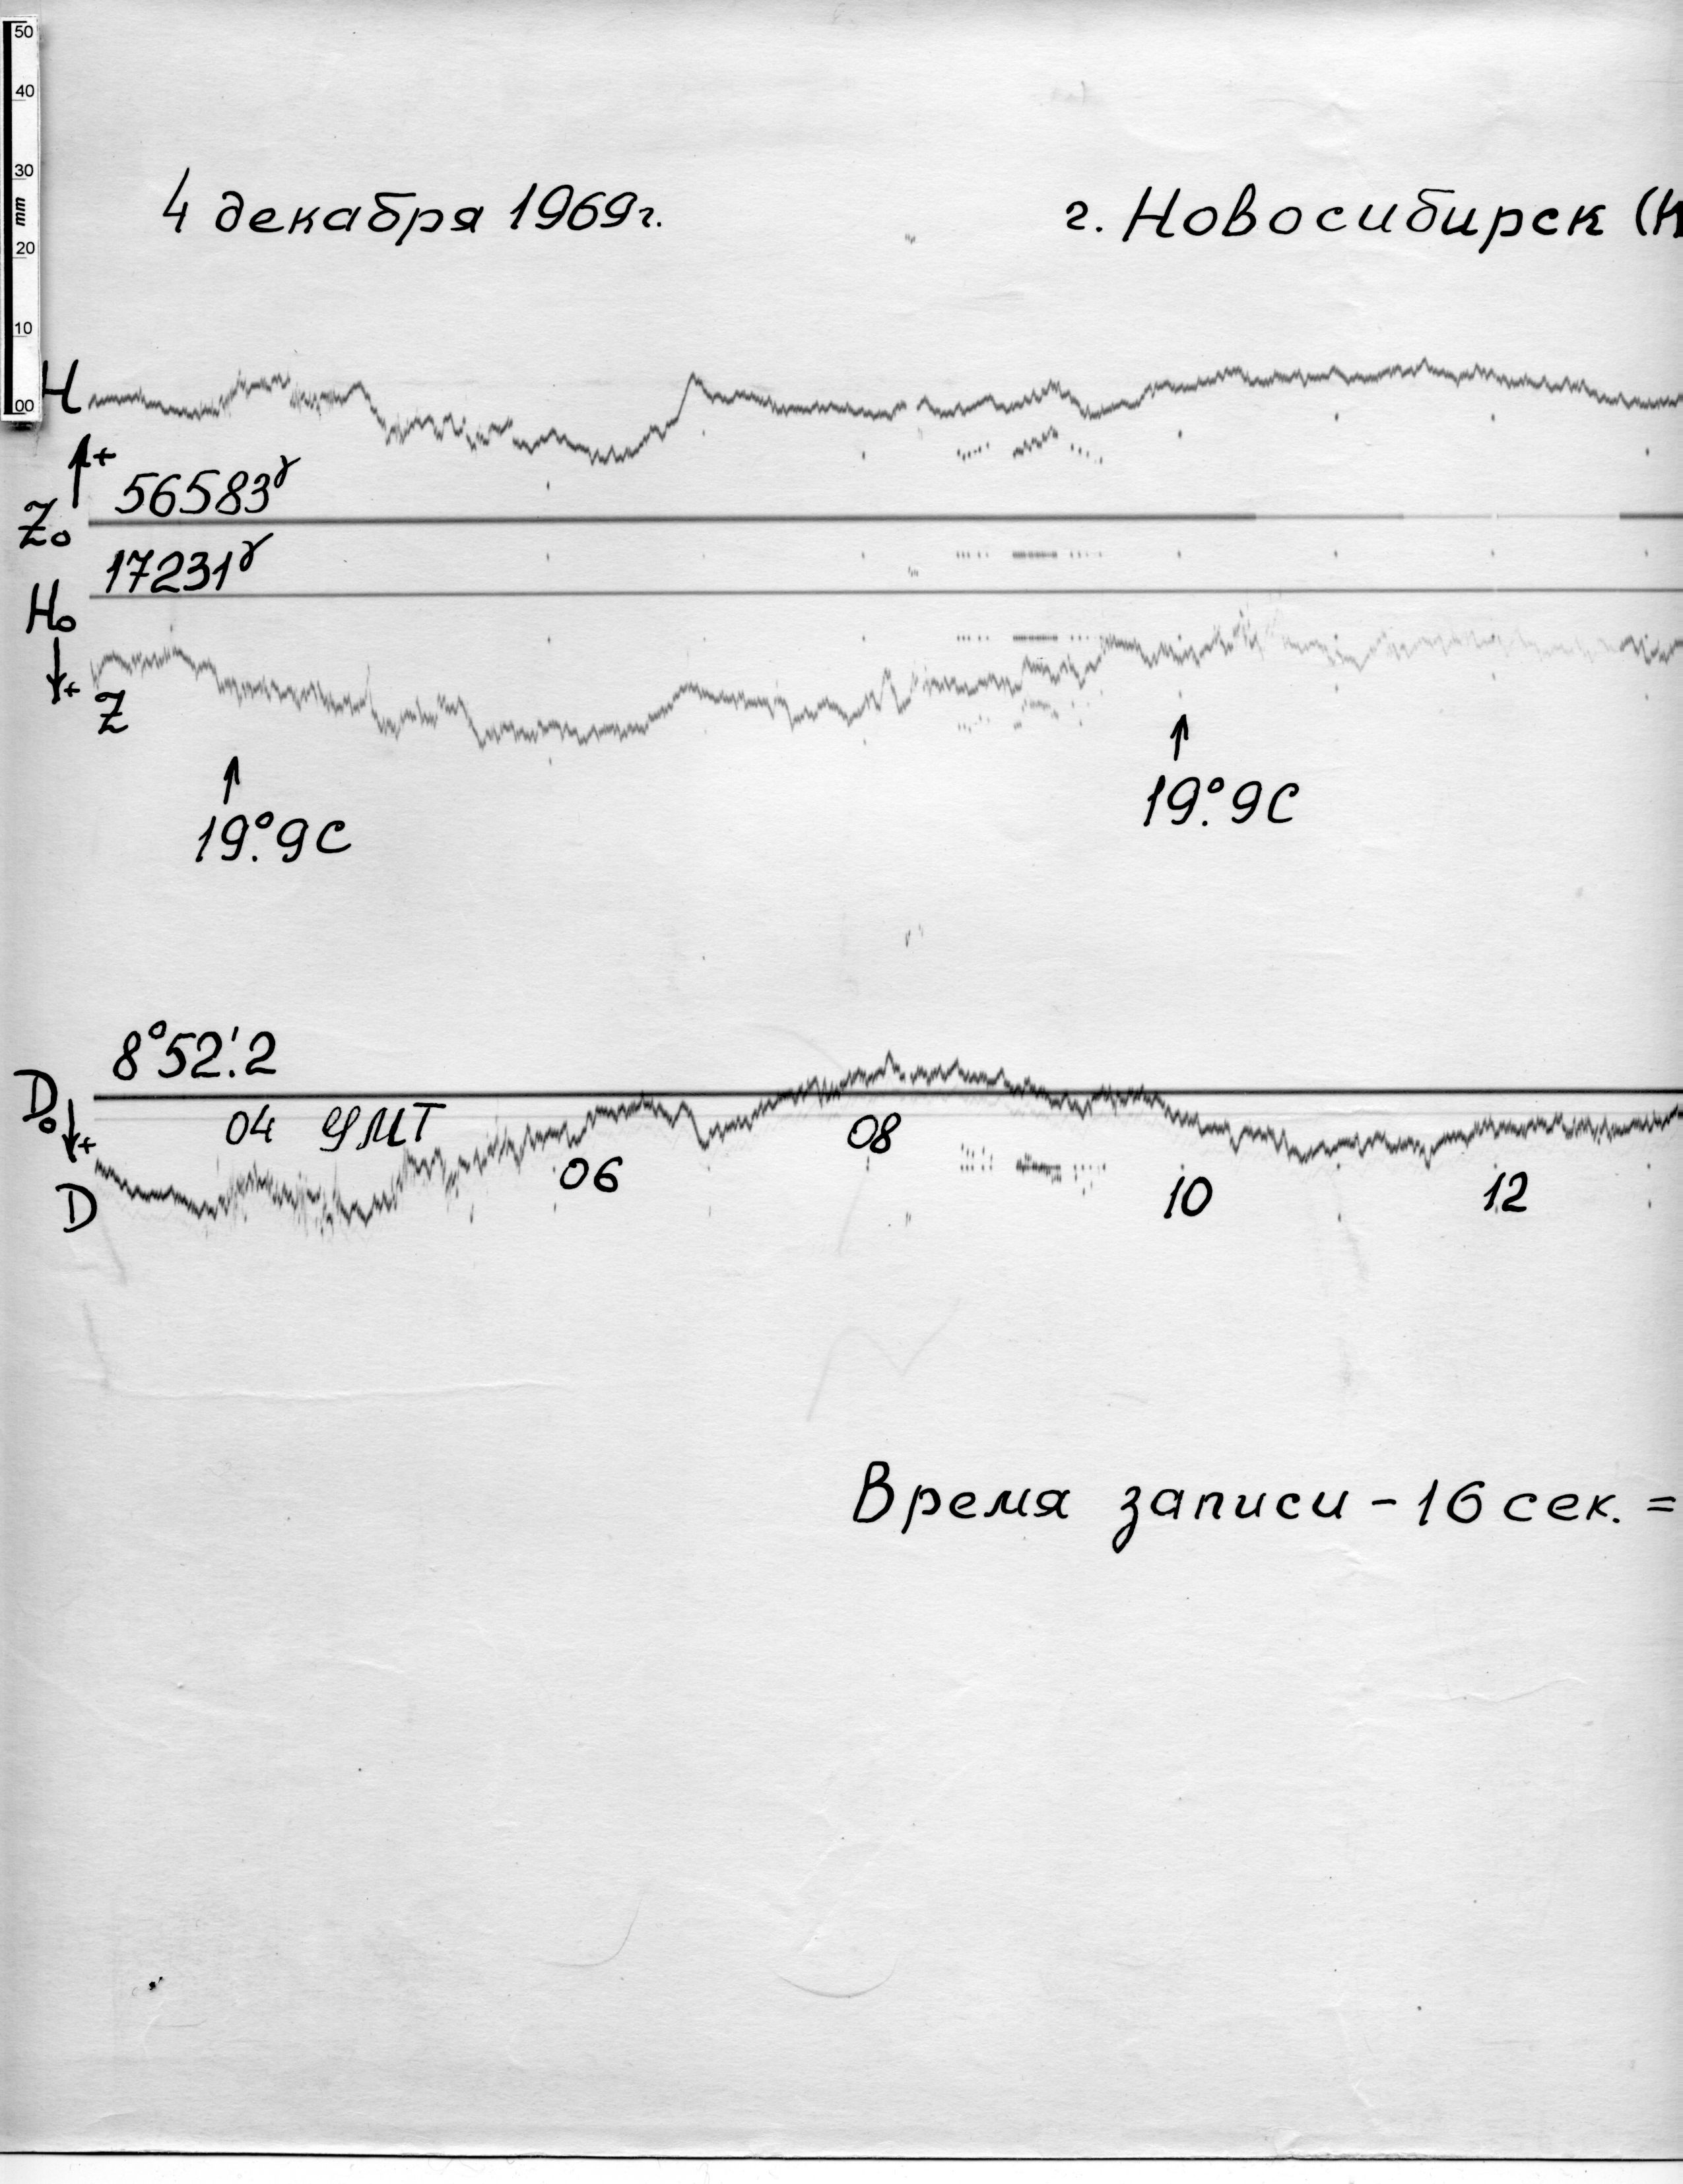 50
40
30
mm
20
10
00
4 декабря 1969г.
г. Новосибирск (К
H
+
56583γ
Z₀
17231γ
H₀
+
Z
19°.9С
19°.9С
8°52'.2
D₀
+
04 GMT
08
06
D
10
12
Время записи – 16 сек. =